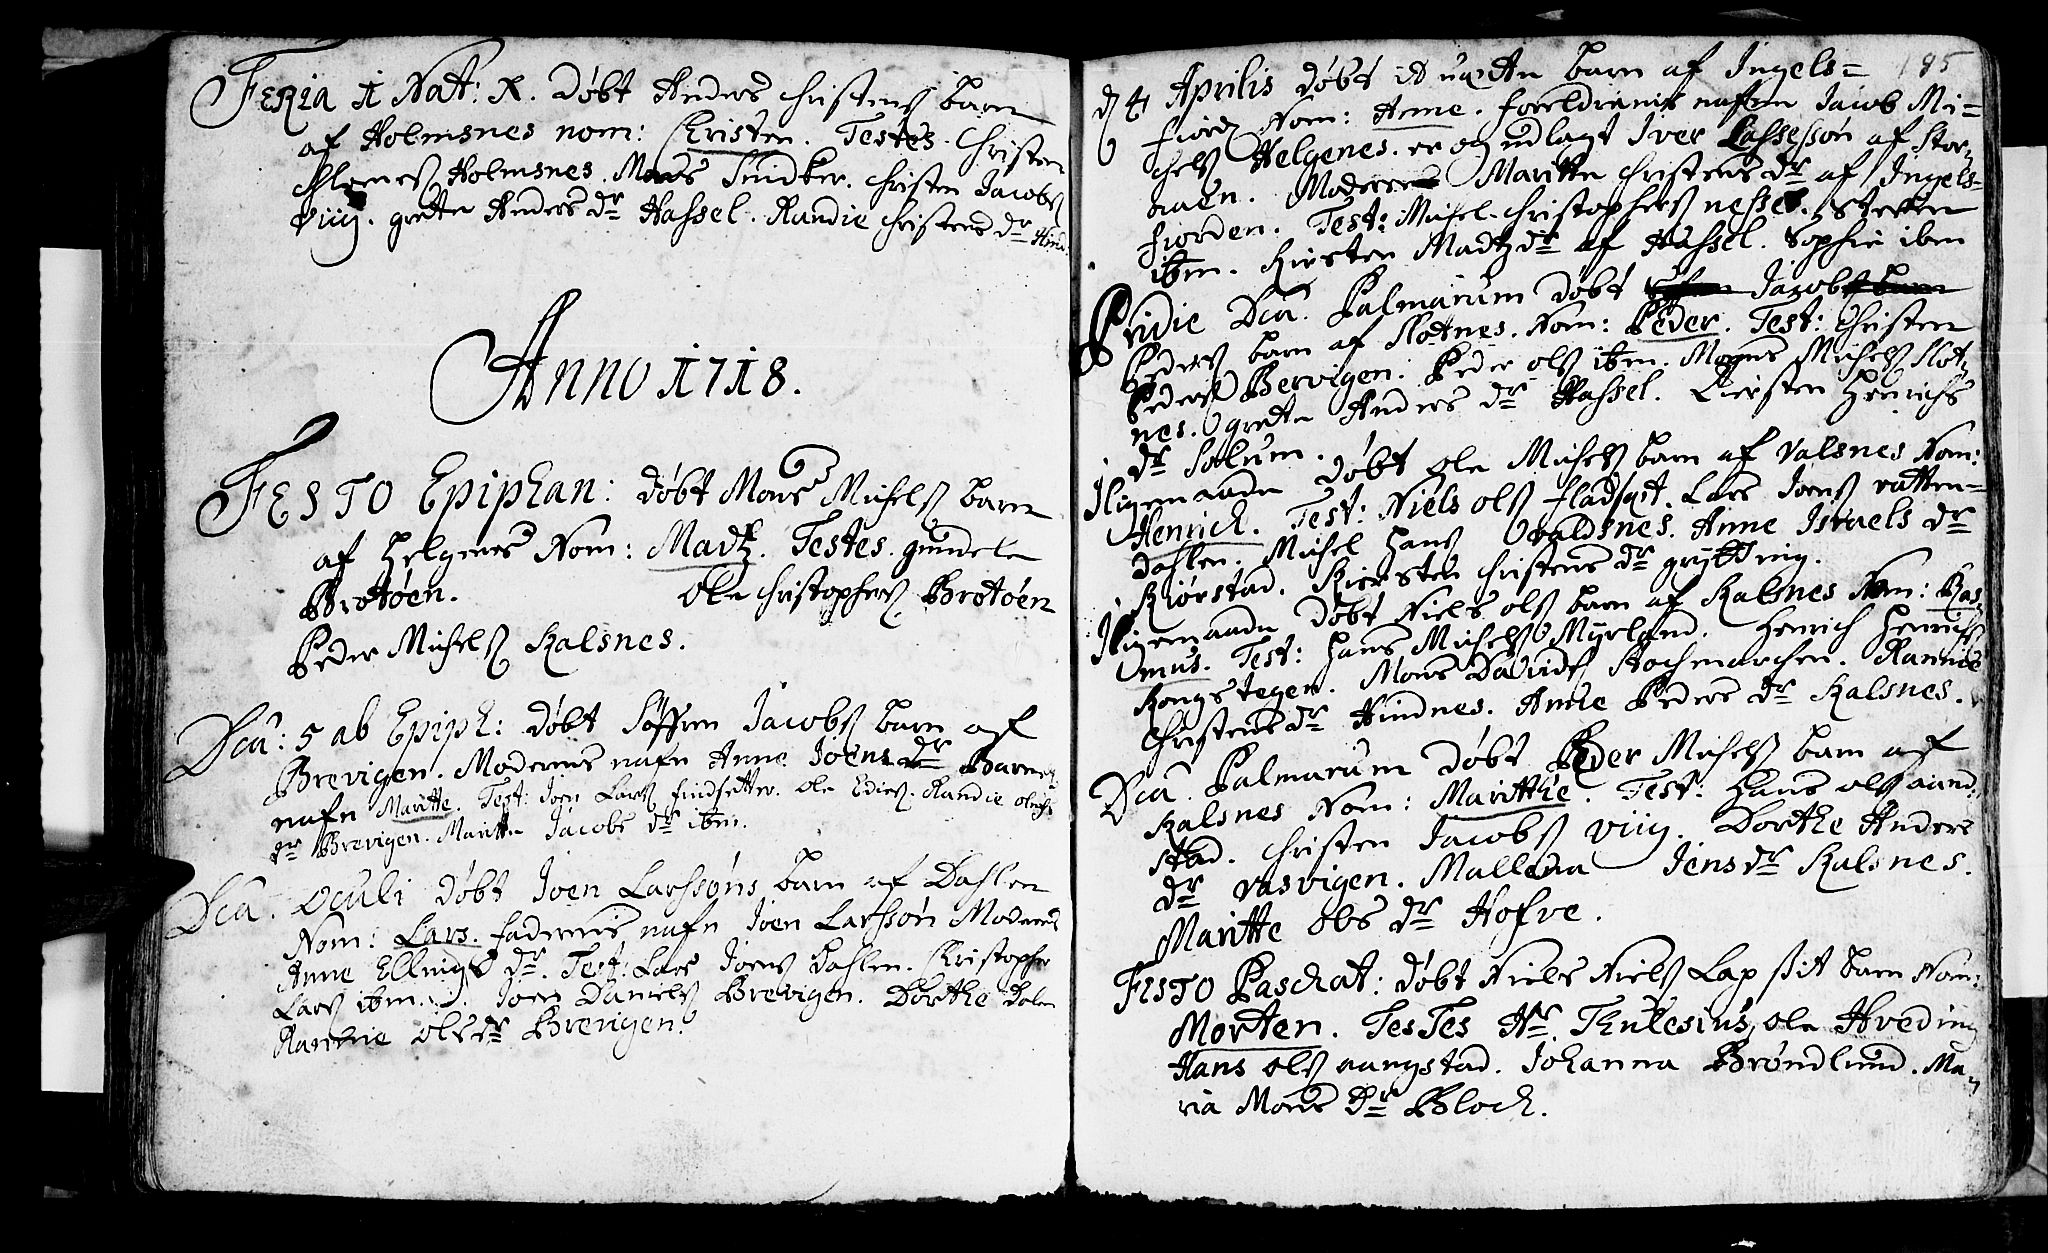 Feria 1 Nat: X. døbt Anders Christens barn
af Holmsnes nom: Christen. Testes. Christen
Holmsnes. Mons Sindker. Christen Jacobs
Viig. grete Anders dr Hassel. Randie Christens dr Hind
Anno 1718.
Festo Epiphan: døbt Mons Michels barn
af Helgenes Nom: Madtz. Testes. gundele
Brotøen. Ole Christophers Brotøen
Peder Michels Kalsnes.
Dca: 5 ab Epiph: døbt Søffren Jacobs barn af
Brevigen. Moderens nafn Anne Joens dr Barnets
nafn Maritte. Test: Joen Lars findsetter. Ole Edis. Randie ols
dr Brevigen. Maritte Jacobs dr ibm.
Dca. Oculi døbt Joen Larssøns barn af Dahlen
Nom: Lars. faderens nafn Joen Larssøn Moderens
Anne Ellings dr. Test: Lars Joens Dahlen. Christopher
Lars ibm. Joen Daniels Brevigen. Dorthe Dalen
Rannie Ols dr Brevigen.
185
d 4 Aprilis døbt it uægte barn af Ingels=
fiord Nom: Anne. foreldrenis nafn Jacob Mi=
chels Helgenes. er og udlagt Iver Lassessøn af Stor,
øuen. Moderens Maritte Christens dr af Ingels=
fiorden. Test: Michel Christophers nesset. Steffen
ibm. Kirsten Madtz dr af Hassel. Sophie ibm
Pridie Dca. Palmarum døbt Jacob
Peders barn af Slotnes. Nom: Peder. Test: Christen
Peders Bervigen. Peder ols ibm. Mogns Michels Slot,
nes. grete Anders dr Hassel. Kiersten Henrichs
dr Solum.
Iligemaade døbt Ole Michels barn af Valsnes Nom:
Henrich. Test: Niels ols fladset. Lars Joens vatten=
dahlen. Michel Hans Valdsnes. Anne Israels dr
Kiørstad. Kiersten Christens dr grytting.
Iligemaade døbt Niels ols barn af Kalsnes Nom: Ras,
mus. Test: Hans Michels Myrland. Henrich Henrichs
Kongsjegen. Mons Davids Stochmarchen. Rannie
Christens dr Hindnes. Anne Peders dr Kalsnes.
Dca Palmarum døbt Peder Michels barn af
Kalsnes Nom: Maritthe. Test: Hans ols aand,
stad. Christen Jacobs Viig. Dorthe Anders
dr vasvigen. Mallena Jens dr Kalsnes.
Maritte Ols dr Hofve.
Festo Paschat: døbt Niels Niels Lap sit barn Nom:
Morten. Testes Hr. Thulesius, ole Hveding
Hans ols aangstad. Johanna Brøndlund. Ma,
ria Mons dr Bloch.